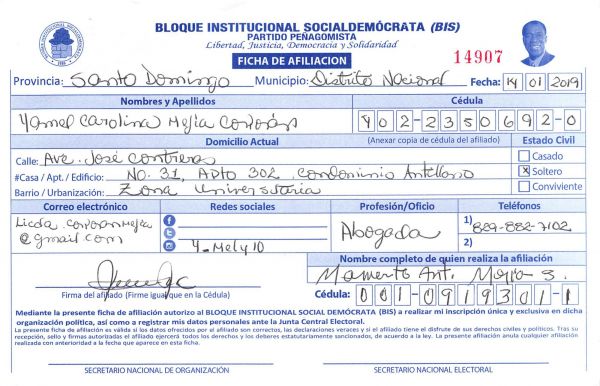 BLOQUE INSTITUCIONAL SOCIALDEMÓCRATA (BIS)
PARTIDO PEÑAGOMISTA
Libertad, Justicia, Democracia y Solidaridad
FICHA DE AFILIACION
14907
Provincia: Santo Domingo Municipio: Distrito Nacional Fecha: 14 01 2019
Nombres y Apellidos Cédula
Yamel Carolina Mejía Corporán 402-2350692-0
Domicilio Actual (Anexar copia de cédula del afiliado) Estado Civil
Calle: Ave. José Contreras Casado
#Casa / Apt. / Edificio: No. 31, Apto 302, Condominio Antellano X Soltero
Barrio / Urbanización: Zona Universitaria Conviviente
Correo electrónico Redes sociales Profesión/Oficio Teléfonos
Licda.corporanmejia
@gmail.com
Y-Mely10
Abogada
1) 829-882-7102
2)
Nombre completo de quien realiza la afiliación
Ant. Mejía S.
Firma del afiliado (Firme igual que en la Cédula) Cédula: 001-0919301-1
Mediante la presente ficha de afiliación autorizo al BLOQUE INSTITUCIONAL SOCIAL DEMÓCRATA (BIS) a realizar mi inscripción única y exclusiva en dicha
organización política, así como a registrar mis datos personales ante la Junta Central Electoral.
La presente ficha de afiliación es válida si los datos ofrecidos por el afiliado son correctos, las declaraciones veraces y si el afiliado tiene el disfrute de sus derechos civiles y políticos. Tras su
recepción, sello y firmas autorizadas el afiliado ejercerá todos los derechos y los deberes estatutariamente sancionados, de acuerdo a la ley. La presente afiliación anula cualquier afiliación
realizada con anterioridad a la fecha que aparece en esta ficha.
SECRETARIO NACIONAL DE ORGANIZACIÓN SECRETARIO NACIONAL ELECTORAL